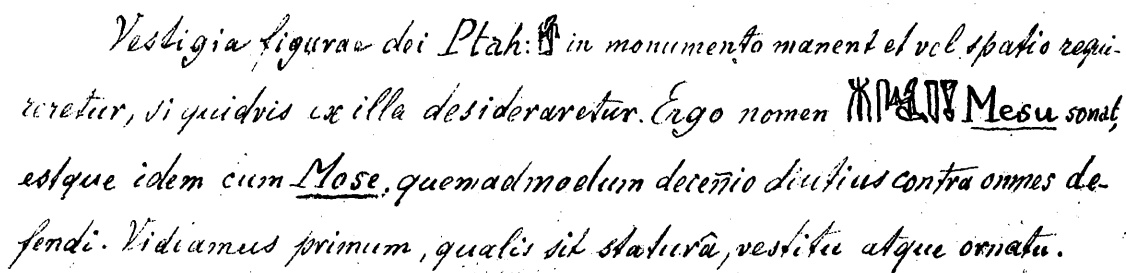 Vestigia figurae dei Ptah: in monumento manent et vel spatio requi-
reretur, si quidvis ex illa desideraretur. Ergo nomen Mesu sonat,
estque idem cum Mose, quemadmodum decennio diutius contra omnes de-
fendi. Vidiamus primum, qualis sit staturâ, vestitu atque ornatu.